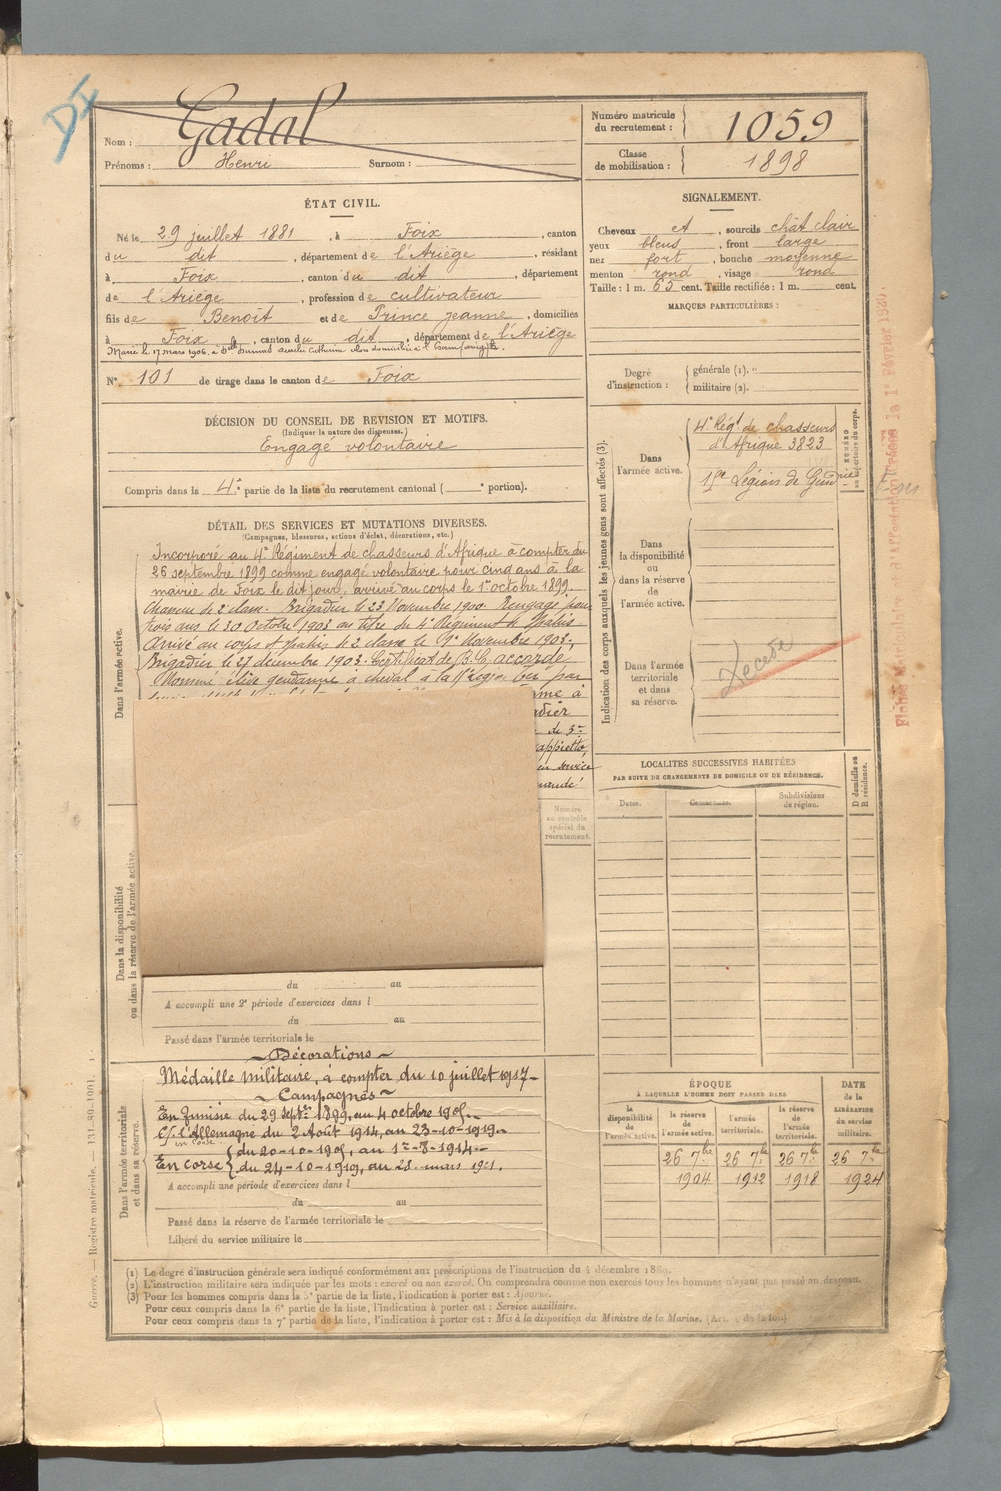 DI
Nom : Gadal
Prénoms : Henri Surnom :
Numéro matricule du recrutement : 1059
Classe de mobilisation : 1898
ÉTAT CIVIL.
Né le 29 juillet 1881, à Foix, canton
du dit, département de l'Ariège, résidant
à Foix, canton du dit, département
de l'Ariège, profession de cultivateur
fils de Benoit et de Prince jeanne, domiciliés
à Foix, canton du dit, département de l'Ariège
Marié le 17 mars 1906, à Dlle
N° 101 de tirage dans le canton de Foix
SIGNALEMENT.
Cheveux et, sourcils chât clair
yeux bleus, front large
nez fort, bouche moyenne
menton rond, visage rond
Taille : 1 m. 65 cent. Taille rectifiée : 1 m. cent.
MARQUES PARTICULIÈRES :
Degré d'instruction : générale (1). militaire (2).
DÉCISION DU CONSEIL DE REVISION ET MOTIFS.
(Indiquer la nature des dispenses.)
Engagé volontaire
Compris dans la 4e partie de la liste du recrutement cantonal ( e portion).
DÉTAIL DES SERVICES ET MUTATIONS DIVERSES.
(Campagnes, blessures, actions d'éclat, décorations, etc.)
Dans l'armée active.
Incorporé au 4e Régiment de chasseurs d'Afrique à compter du
26 septembre 1899 comme engagé volontaire pour cinq ans à la
mairie de Foix le dit jour, arrivé au corps le 1er octobre 1899.
Chasseur de 2e classe. Brigadier le 23 Novembre 1900. Rengagé pour
trois ans le 30 Octobre 1903 au titre du 4e Régiment de Spahis
Arrivé au corps et spahis de 2e classe le 9 Novembre 1903.
Brigadier le 27 décembre 1903. Certificat de B. C. accordé.
Nommé élève gendarme à cheval à la
à
de 3e
service
Numéro au contrôle spécial du recrutement.
Dans la disponibilité ou dans la réserve de l'armée active.
du au
A accompli une 2e période d'exercices dans l
du au
Passé dans l'armée territoriale le
Dans l'armée territoriale et dans sa réserve.
Décorations
Médaille militaire, à compter du 10 juillet 1917
Campagnes
En Tunisie du 29 septbre 1899, au 4 octobre 1905.
C/ l'Allemagne du 2 Août 1914, au 23-10-1919
en Corse
En Corse { du 20-10-1905, au 1er-8-1914
du 24-10-1919, au 25 mars 1921.
A accompli une période d'exercices dans l
du au
Passé dans la réserve de l'armée territoriale le
Libéré du service militaire le
Indication des corps auxquels les jeunes gens sont affectés (3).
Dans l'armée active.
4e Régt de chasseurs
d'Afrique 3823
15e Légion de Gendrie
NUMÉRO au répertoire du corps.
Dans la disponibilité ou dans la réserve de l'armée active.
Dans l'armée territoriale et dans sa réserve.
Décédé
LOCALITÉS SUCCESSIVES HABITÉES
PAR SUITE DE CHANGEMENTS DE DOMICILE OU DE RÉSIDENCE.
Dates. Communes. Subdivisions de région. D domicile ou R résidence.
ÉPOQUE
À LAQUELLE L'HOMME DOIT PASSER DANS
la disponibilité de l'armée active. la réserve de l'armée active. l'armée territoriale. la réserve de l'armée territoriale.
DATE de la LIBÉRATION du service militaire.
26 7bre 26 7bre 26 7bre 26 7bre
1904 1912 1918 1924
Guerre. — Registre matricule. — 131-89-1901.
(1) Le degré d'instruction générale sera indiqué conformément aux prescriptions de l'instruction du 4 décembre 1889.
(2) L'instruction militaire sera indiquée par les mots : exercé ou non exercé. On comprendra comme non exercés tous les hommes n'ayant pas passé au drapeau.
(3) Pour les hommes compris dans la 5e partie de la liste, l'indication à porter est : Ajourné.
Pour ceux compris dans la 6e partie de la liste, l'indication à porter est : Service auxiliaire.
Pour ceux compris dans la 7e partie de la liste, l'indication à porter est : Mis à la disposition du Ministre de la Marine.